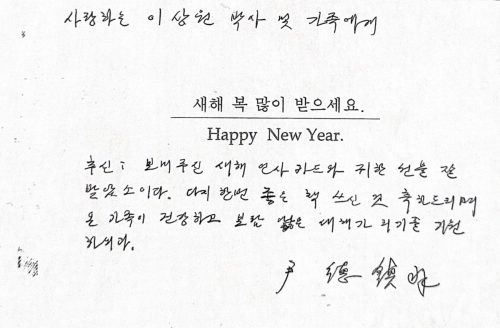 사랑하는 이상원 박사 및 가족에게
새해 복 많이 받으세요.
Happy New Year.
추신: 보내주신 새해 인사카드와 귀한 선물 잘
받았소이다. 다시한번 좋은 책 쓰신 것 축하드리며
온 가족이 건강하고 보람 많은 새해가 되기를 기원
하외다.
尹 德 鎭